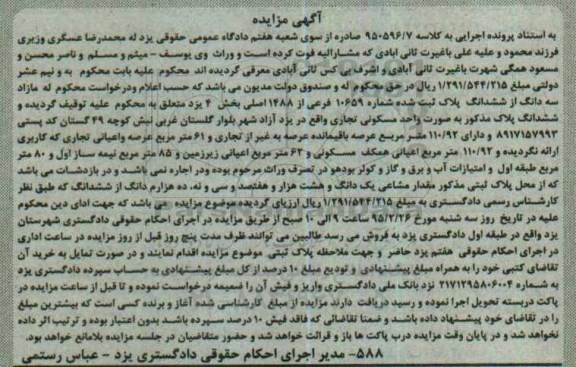 آگهی مزایده
به استناد پرونده اجرایی به کلاسه ۹۵۰۵۹۶/۷ صادره از سوی شعبه هفتم دادگاه عمومی حقوقی یزد له محمدرضا عسگری وزیری
فرزند محمود و علیه علی باغیرت ثانی ابادی که مشارالیه فوت کرده است و وراث وی یوسف - میثم و مسلم و ناصر محسن و
مسعود همگی شهرت باغیرت ثانی آبادی و اشرف بی کس ثانی آبادی معرفی گردیده اند محکوم علیه بابت محکوم به و نیم عشر
دولتی مبلغ ۱/۲۹۱/۵۴۴/۲۱۵ ریال در حق محکوم له و صندوق دولت مدیون می باشد که حسب اعلام ودرخواست محکوم له مازاد
سه دانگ از ششدانگ پلاک ثبت شده شماره ۱۰۶۵۹ فرعی از ۱۴۸۸ اصلی بخش ۴ یزد متعلق به محکوم علیه توقیف گردیده و
ششدانگ پلاک مذکور به صورت واحد مسکونی تجاری واقع در یزد آزاد شهر بلوار گلستان غربی نبش کوچه ۴۹ گستان کد پستی
۸۹۱۷۱۵۷۹۹۳ و دارای ۱۱۰/۹۲ متر مربع عرصه باقیمانده عرصه به غیر از تجاری و ۶۱ متر مربع عرصه واعیانی تجاری که کاربری
ارائه نگردیده و ۱۱۰/۹۲ متر مربع اعیانی همکف مسکونی و ۶۳ متر مربع اعیانی زیرزمین و ۸۵ متر مربع نیمه ساز اول و ۸۰ متر
مربع طبقه اول و امتیازات آب و برق و گاز و کولر بودهو در تصرف وراث مرحوم بوده ودر اجاره نمی باشد و در بازدشات می باشد
که از محل پلاک ثبتی مذکور مقدار مشاعی یک دانگ و هشت هزار و هفتصد و سی و نه، ده هزارم دانگ از ششدانگ که طبق نظر
کارشناس رسمی دادگستری به مبلغ ۱/۲۹۱/۵۴۴/۲۱۵ ریال ارزیای گردیده موضوع مزایده می باشد که جهت ادای دین محکوم
علیه در تاریخ روز سه شنبه مورخ ۹۵/۲/۲۶ ساعت ۹ الی ۱۰ صبح از طریق مزایده در اجرای احکام حقوقی دادگستری شهرستان
یزد واقع در طبقه اول دادگستری یزد به فروش می رسد طالبین می توانند ظرف مدت پنج روز قبل از روز مزایده در ساعت اداری
در اجرای احکام حقوقی هفتم یزد حاضر و جهت ملاحظه پلاک ثبتی موضوع مزایده اقدام نمایند و در صورت تمایل به خرید آن
تقاضای کتبی خود را به همراه مبلغ پیشنهادی و تودیع مبلغ ۱۰ درصد از کل مبلغ پیشنهادی به حساب سپرده دادگستری یزد
به شماره ۲۱۷۱۲۹۵۸۰۶۰۰۴ نزد بانک ملی دادگستری واریز و فیش آن را ضمیمه درخواست نموده و تا قبل از ساعت مزایده در
پاکت دربسته تحویل اجرا نموده و رسید دریافت دارند مزایده از مبلغ کارشناسی شده آغاز و برنده کسی است که بیشترین مبلغ
را در تقاضای خود پیشنهاد داده باشد و ضمنا تقاضائی که فاقد فیش ۱۰ درصد سپرده باشد بدون اعتبار بوده و ترتیب اثر داده
نخواهد شد و در پایان وقت مزایده درب پاکت ها باز و قرائت خواهد شد و حضور متقاضیان در جلسه مزایده بلامانع خواهد بود.
۵۸۸- مدیر اجرای احکام حقوقی دادگستری یزد - عباس رستمی